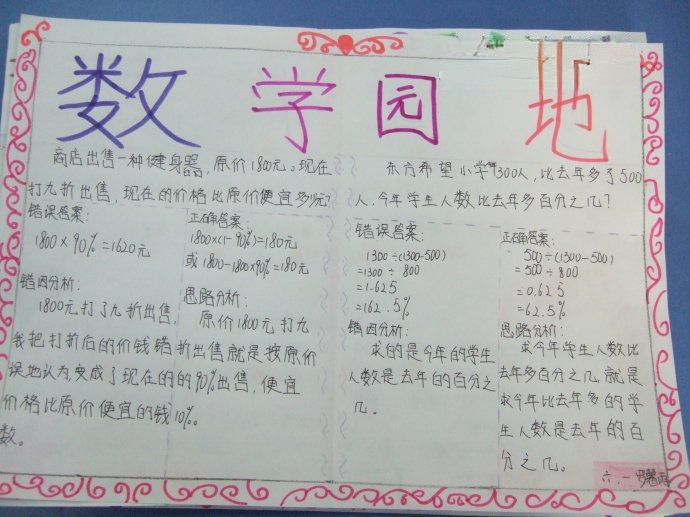 数学园地
商店出售一种健身器，原价1800元。现在
打九折出售，现在的价格比原价便宜多少元？
错误答案：
1800×90%=1620元
错因分析：
1800元打了九折出售，
我把打折后的价钱错
误地认为
价格比原价便宜的钱
数。
正确答案：
1800×(1-90%)=180元
或1800-1800×90%=180元
思路分析：
原价1800元打九
折出售就是按原价
的90%出售，便宜
10%。
东方希望小学有1300人，比去年多了500
人，今年学生人数比去年多百分之几？
错误答案：
1300÷(1300-500)
=1300÷800
=1.625
=162.5%
错因分析：
求的是今年的学生
人数是去年的百分之
几。
正确答案：
500÷(1300-500)
=500÷800
=0.625
=62.5%
思路分析：
求今年学生人数比
去年多百分之几，就是
求今年比去年多的学
生人数是去年的百
分之几。
六.一